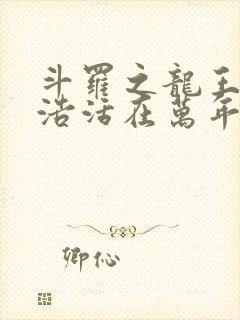 斗羅之龍王
浩活在萬年
卿伈